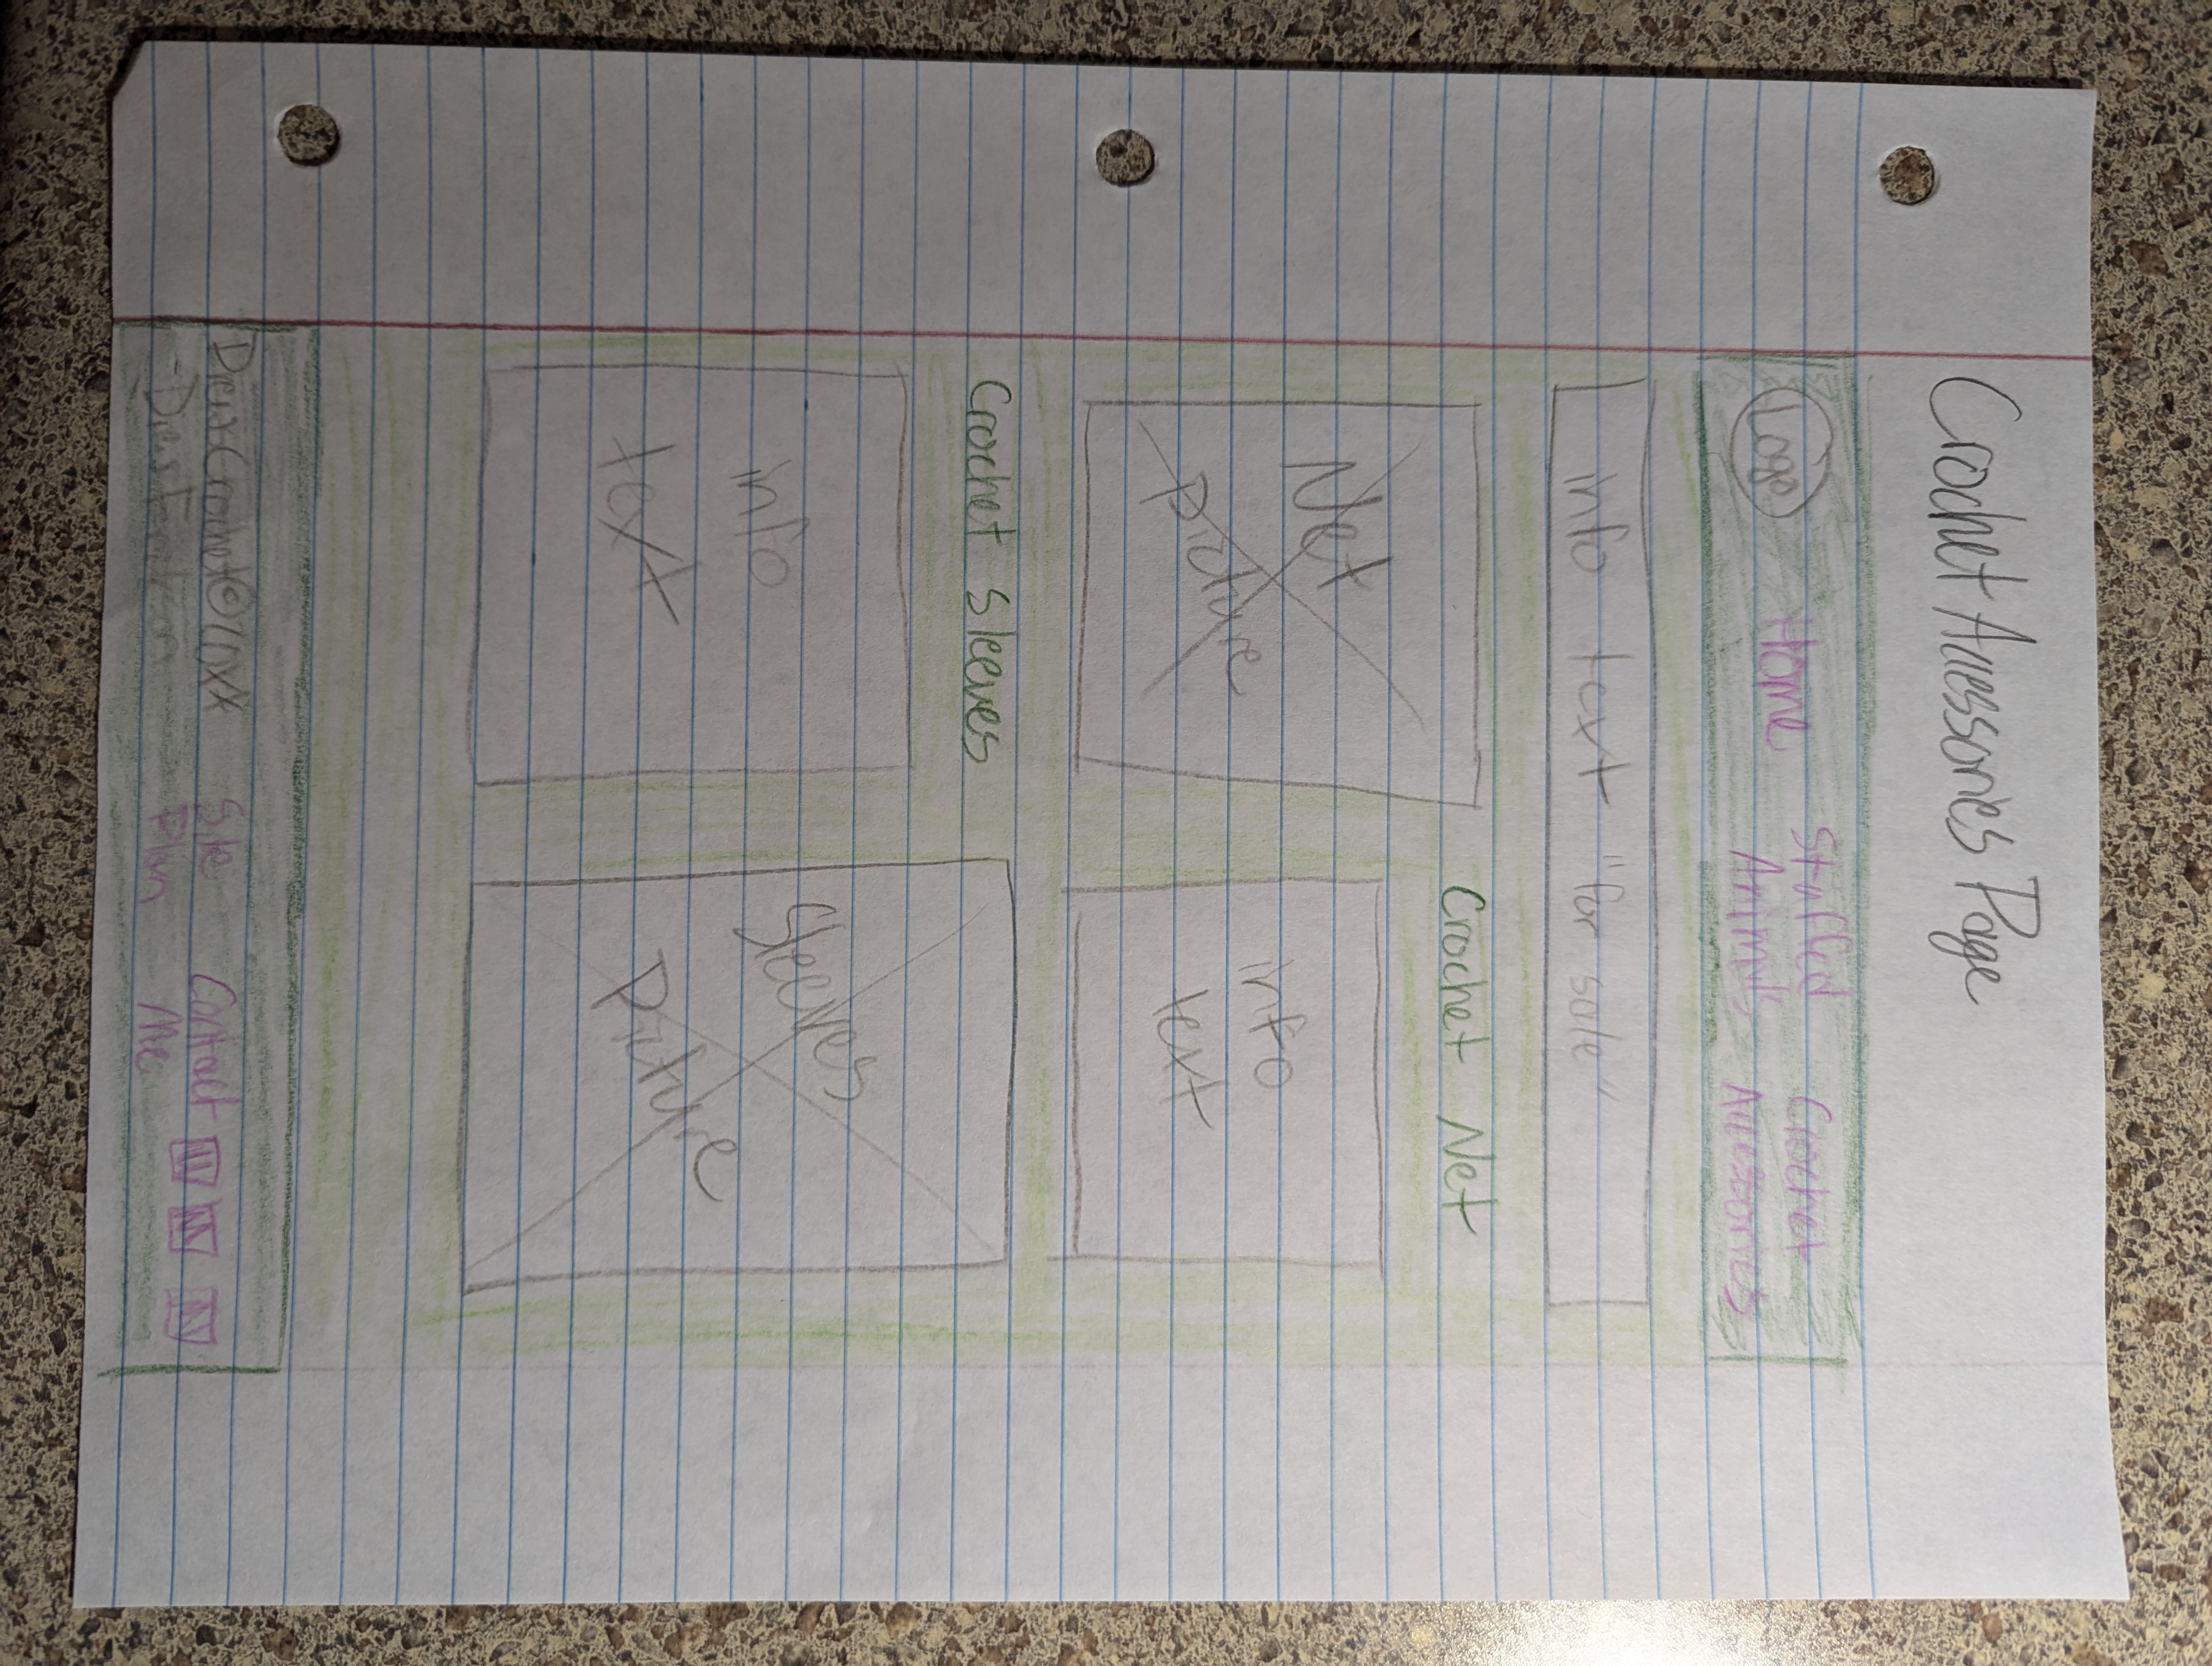 Crochet Accessories Page
Logo Home Stuffed Animals Crochet Accessories
info text "for sale"
Net
picture
Crochet Net
info
text
Crochet Sleeves
info
text
Sleeves
Picture
Drews Crochet © 20XX
Site
Plan
Contact
Me